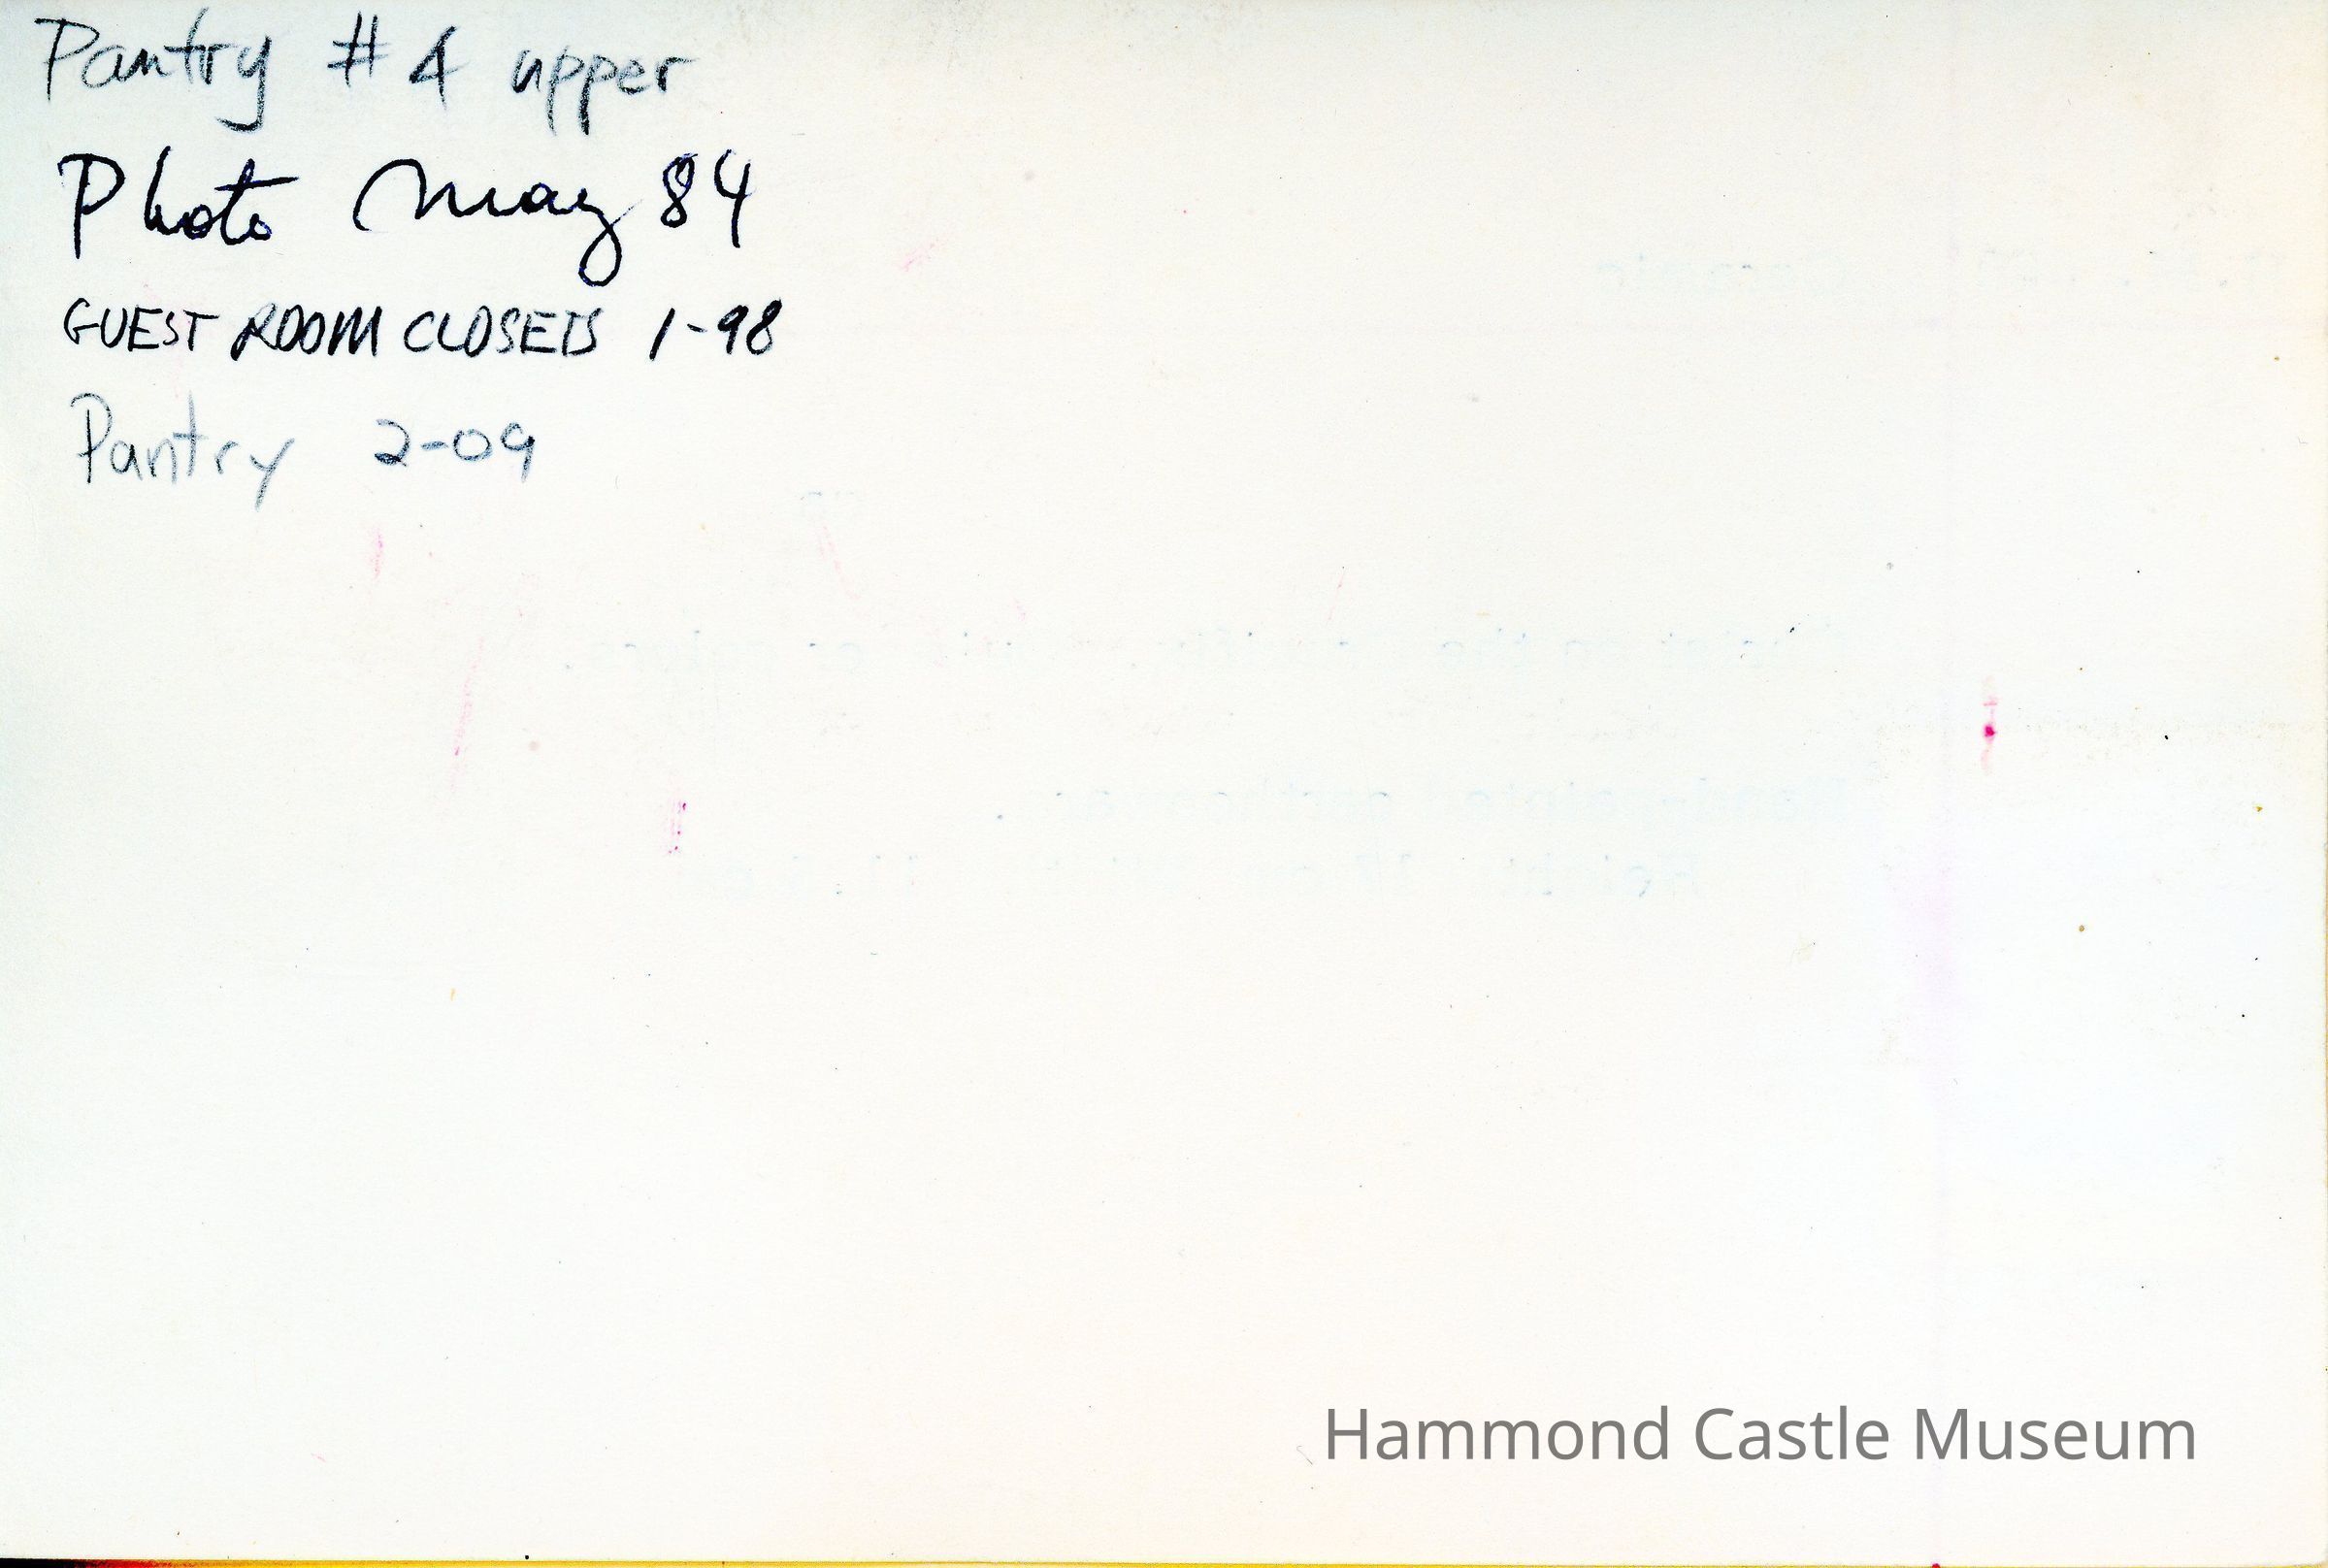 Pantry # 4 upper
Photo May 84
GUEST ROOM CLOSETS 1-98
Pantry 2-09
Hammond Castle Museum